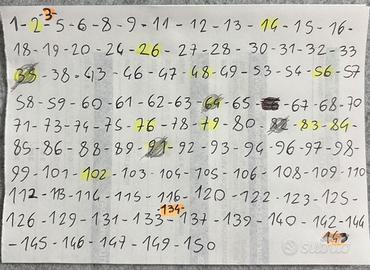 1-2-3-5-6-8-9-11-12-13-14-15-16-
18-19-20-24-26-27-28-30-31-32-33
38-43-46-47-48-49-53-54-56-57
58-59-60-61-62-63-64-65-67-68-70
71-73-74-75-76-78-79-80-83-84-
85-86-88-89-91-92-93-94-96-97-98-
99-101-102-103-104-105-106-108-109-110
112-113-114-115-116-120-122-123-125-
126-129-131-133-134-137-139-140-142-143-144
-145-146-147-149-150
subito